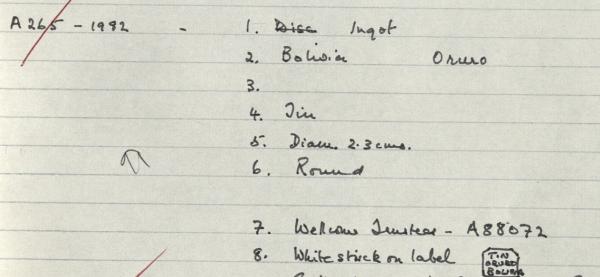 A 265 – 1982 - 1. Disc Ingot
2. Bolivia Oruro
3.
4. Tin
5. Diam. 2.3 cms.
6. Round
7. Wellcome Trustees – A88072
8. White stick on label TIN ORURO BOLIVIA